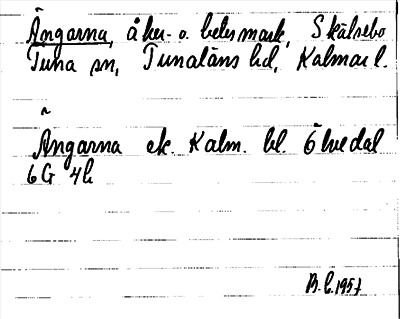 Ängarna, åker- o. betesmark, Skälsebo
Tuna sn, Tunaläns hd, Kalmar l.
~
Ängarna ek. Kalm. bl. Ölvedal
6G 4h
B.L. 1957